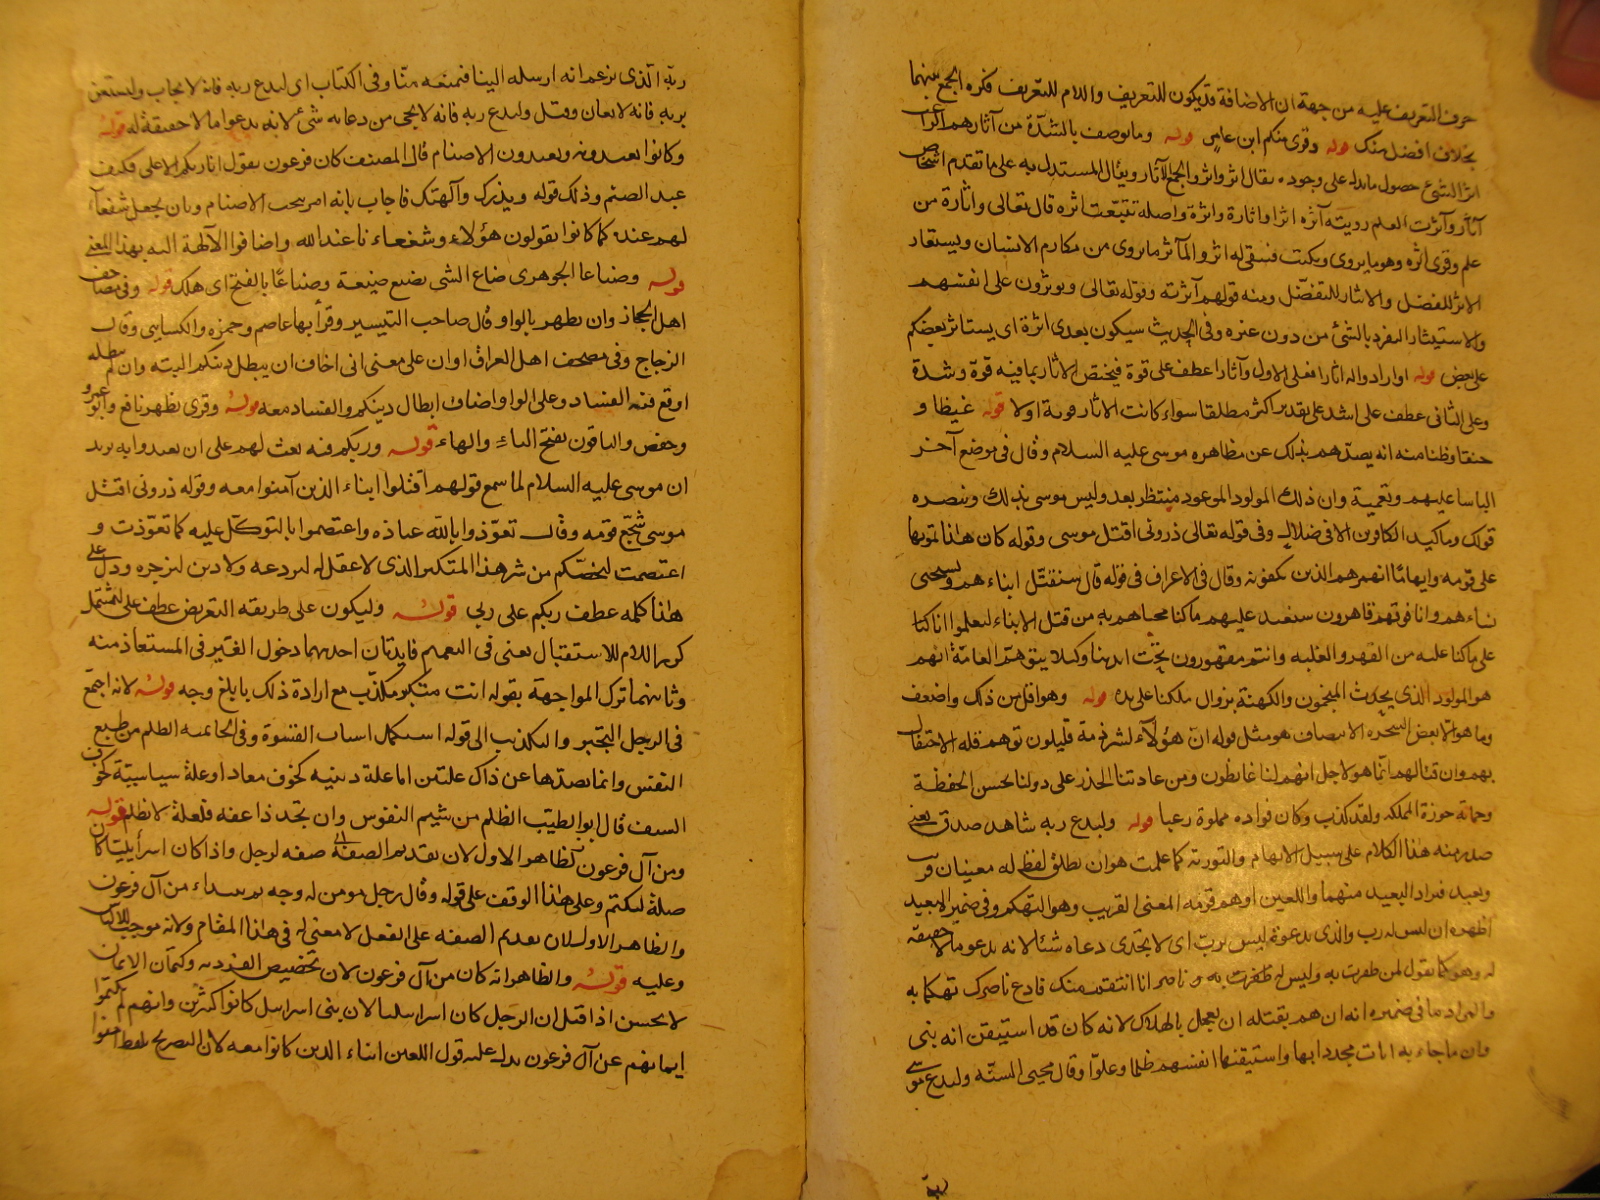 حرف التعريف عليه من جهة ان الاضافة قد يكون للتعريف واللام للتعريف فكره الجمع بينهما
بخلاف افضل منك قوله وقرى منكم ابن عامر قوله وما يوصف بالشدة من آثارهم اكثرا
اثر الشئ حصول ما يدل على وجوده يقال اثر واثر والجمع الآثار ويقال المستدل به على ما تقدم اشخاص
آثار وآثرت العلم رويته آثره اثرا واثارة واثرة واصله تتبعت اثره قال تعالى واثارة من
علم وقرى اثره وهو ما يروى ويكتب فيبقى له اثر والمآثر ما يروى من مكارم الانسان ويستعار
الاثر للفضل والايثار للتفضل ومنه قولهم آثرته وقوله تعالى ويوثرون على انفسهم
والاستيثار التفرد بالشئ من دون غيره وفى الحديث سيكون بعدى اثرة اى يستاثر بعضكم
على بعض قوله او ارادوا اله اثارا فعلى الاول وآثارا عطف على قوة فيختص الاثار بما فيه قوة وشدة
وعلى الثانى عطف على اشد على تقدير اكثر مطلقا سواء كانت الاثار قوية اولا قوله غيظا و
حنقا وظنا منه انه يصدهم بذلك عن مظاهره موسى عليه السلام وقال فى موضع آخر
الباسا عليهم وتعمية وان ذلك المولود الموعود منتظر بعد وليس موسى بذلك وينصره
قولك وما كيد الكافرين الا فى ضلال وفى قوله تعالى ذرونى اقتل موسى وقوله كان هذا تمويها
على قومه وايهاما انهم هم الذين يكفونه وقال فى الاعراف فى قوله قال سنقتل ابناءهم ونستحيى
نساءهم وانا فوقهم قاهرون سنعيد عليهم ما كنا محناهم به من قتل الابناء ليعلموا انا كنا
على ما كنا عليه من القهر والغلبه وانتم مقهورون تحت ايدينا وكيلا يتوهم العامة انهم
هو المولود الذى يحدث المنجمون والكهنة بزوال ملكنا على يده قوله وهو اقل من ذلك واضعف
وما هو الا بعض السحرة الانصاف هو مثل قوله ان هؤلاء لشرذمة قليلون توهم قلة الاحتفال
بهم وان قتالهم انما هو لاجل انهم لنا غائظون ومن عادتنا الحذر على دولنا بحسن الحفظة
وحماية حوزة المملكة ولقد كذب وكان فواده مملوة رعبا قوله وليدع ربه شاهد صدق يعنى
صدر منه هذا الكلام على سبيل الابهام والتورية كما علمت هو ان يطلق لفظ له معنيان قريب
وبعيد فيراد البعيد منهما واللعين اوهم قومه المعنى القريب وهو التهكم وفى ضمير البعيد
اظهره ان ليس له رب والذى يدعوه ليس برب اى لا يجدى دعاه شئا لانه يدعو ما لا حقيقة
له وهو كما يقول لمن ظفرت به وليس له ناصر انا انتقمت منك فادع ناصرك تهكما به
والمراد ما فى ضميره انه ان هم بقتله ان يعجل بالهلاك لانه كان قد استيقن انه نبى
وان ما جاء به ايات مجدد بها واستيقنتها انفسهم ظلما وعلوا وقال محيى السنة وليدع موسى
ربه
ربه الذى يزعم انه ارسله الينا فيمنعه منا وفى الكتاب اى ليدع ربه فانه لا يجاب وليستعن
بربه فانه لا يعان وقيل وليدع ربه فانه لا يجى من دعائه شئ لانه يدعو ما لا حقيقة له قوله
وكانوا يعبدونه ويعبدون الاصنام قال المصنف كان فرعون يقول انا ربكم الاعلى فكيف
عبد الصنم وذلك قوله ويذرك وآلهتك فاجاب بانه امر بنحت الاصنام وبان يجعل شفعا
لهم عنده كما كانوا يقولون هؤلاء شفعاءنا عند الله واضافوا الآلهة اليه بهذا المعنى
قوله وضياعا الجوهرى ضاع الشى يضيع ضيعة وضياعا بالفتح اى هلك قوله وفى مصاحف
اهل الحجاز وان يظهر بالواو قال صاحب التيسير وقرأ بها عاصم وحمزه والكسايى وقال
الزجاج وفى مصحف اهل العراق او ان على معنى انى اخاف ان يبطل دينكم البتة وان لم يبطله
اوقع فيه الفساد وعلى الواو اضاف ابطال دينكم والفساد معه قوله وقرى يظهر نافع وابو عمرو
وحفص والباقون بفتح الياء والهاء قوله وربكم فيه بعث لهم على ان يعبدوا به يريد
ان موسى عليه السلام لما سمع قولهم اقتلوا ابناء الذين آمنوا معه وقوله ذرونى اقتل
موسى شجع قومه وقال تعوذوا بالله عياذه واعتصموا بالتوكل عليه كما تعوذت و
اعتصمت ليخصكم من شر هذا المتكبر الذى لا عقل له ليردعه ولا دين ليزجره ودل على
هذا كلمه عطف ربكم على ربى قوله وليكون على طريقه التعريض عطف على ليشتمل
كرر اللام للاستقبال يعنى فى التعميم فايدتان احديهما دخول الغير فى المستعاذ منه
وثانيتهما ترك المواجهة بقوله انت متكبر مكذب مع ارادة ذلك بابلغ وجه قوله لانه اجتمع
فى الرجل التجبر والتكذيب الى قوله استكمل اسباب القسوة وفى الخاتمه الظلم من طبع
النفس وانما يصدها عن ذاك علتين اما علة دينيه كخوف معاد او علة سياسية كخوف
السيف قال ابو الطيب الظلم من شيم النفوس وان تجد ذا عفه فلعلة لا يظلم قوله
ومن آل فرعون الظاهر الاول لان تقديم الصفه صفه لرجل واذا كان اسرائيليا كان
صلة ليكتم وعلى هذا الوقف على قوله وقال رجل مومن له وجه من آل فرعون
والظاهر الاول لان تقديم الصفه على الفعل لا معنى له فى هذا المقام ولانه موجب للالباس
وعليه قوله والظاهر انه كان من آل فرعون لان تخصيص الفرد به وكتمان الايمان
لا يحسن اذا قيل ان الرجل كان اسرائيليا لان بنى اسرايل كانوا كثرين وانهم لم يكتموا
ايمانهم عن آل فرعون يدل عليه قول اللعين ابناء الذين كانوا معه لان التصريح بلفظ امنوا